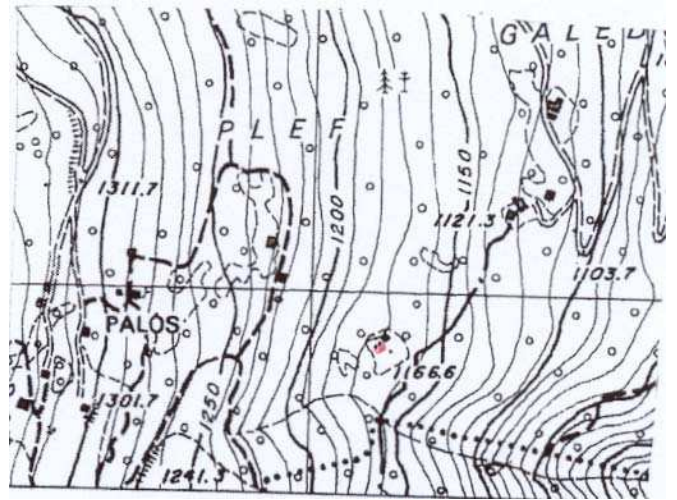 GALED
PLEF
1311.7
1200
1150
1121.3
1103.7
PALOS
1166.6
1301.7
1250
1241.3